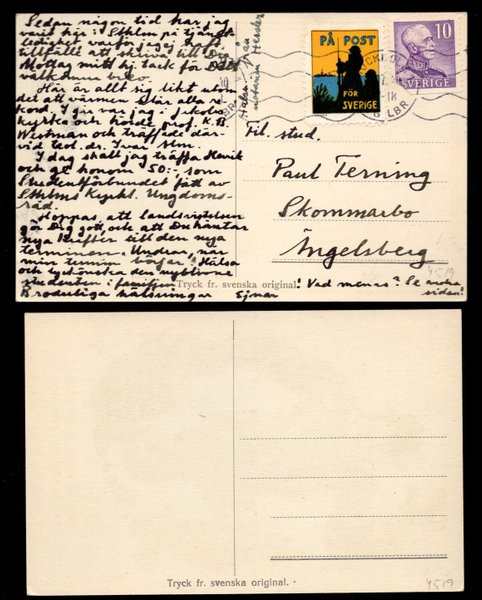 Sedan någon tid har jag
varit här i Sthlm på tjänst-
ledighet varför jag ej haft
tillfälle att skriva till Dig.
Mottag mitt hj. tack för Ditt
välkomna brev.
Här är allt sig likt utom
det att värmen slår alla re-
kord. I går var jag i Jakobs
kyrka och hörde prof. K. B.
Westman och träffade där-
vid teol. dr. Ivar Alm.
I dag skall jag träffa Henrik
och ge honom 50:- som
Studentförbundet fått av
Sthlms Kyrkl. Ungdoms-
råd.
Hoppas, att landsvistelsen
gör Dig gott och att Du hämtar
nya krafter till den nya
terminen. Undrar när
min termin börjar! Hälsa
och lyckönska den nyblivne
studenten i familjen!
Broderliga hälsningar Ejnar
Hälsn. från
notarien Hessler
PÅ POST
FÖR
SVERIGE
10
SVERIGE
LBR
Til. stud.
Paul Terning
Skommarbo
Ängelsberg
! Vad menas? Se andra
sidan!
4519
Tryck fr. svenska original.
Tryck fr. svenska original.
4519